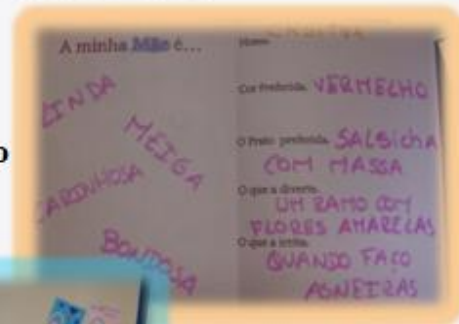 A minha Mãe é...
LINDA
MEIGA
CARINHOSA
BONDOSA
Nome:
Cor Preferida: VERMELHO
O Prato preferido: SALSICHA
COM MASSA
O que a diverte:
UM RAMO COM
FLORES AMARELAS
O que a irrita:
QUANDO FAÇO
ASNEIRAS